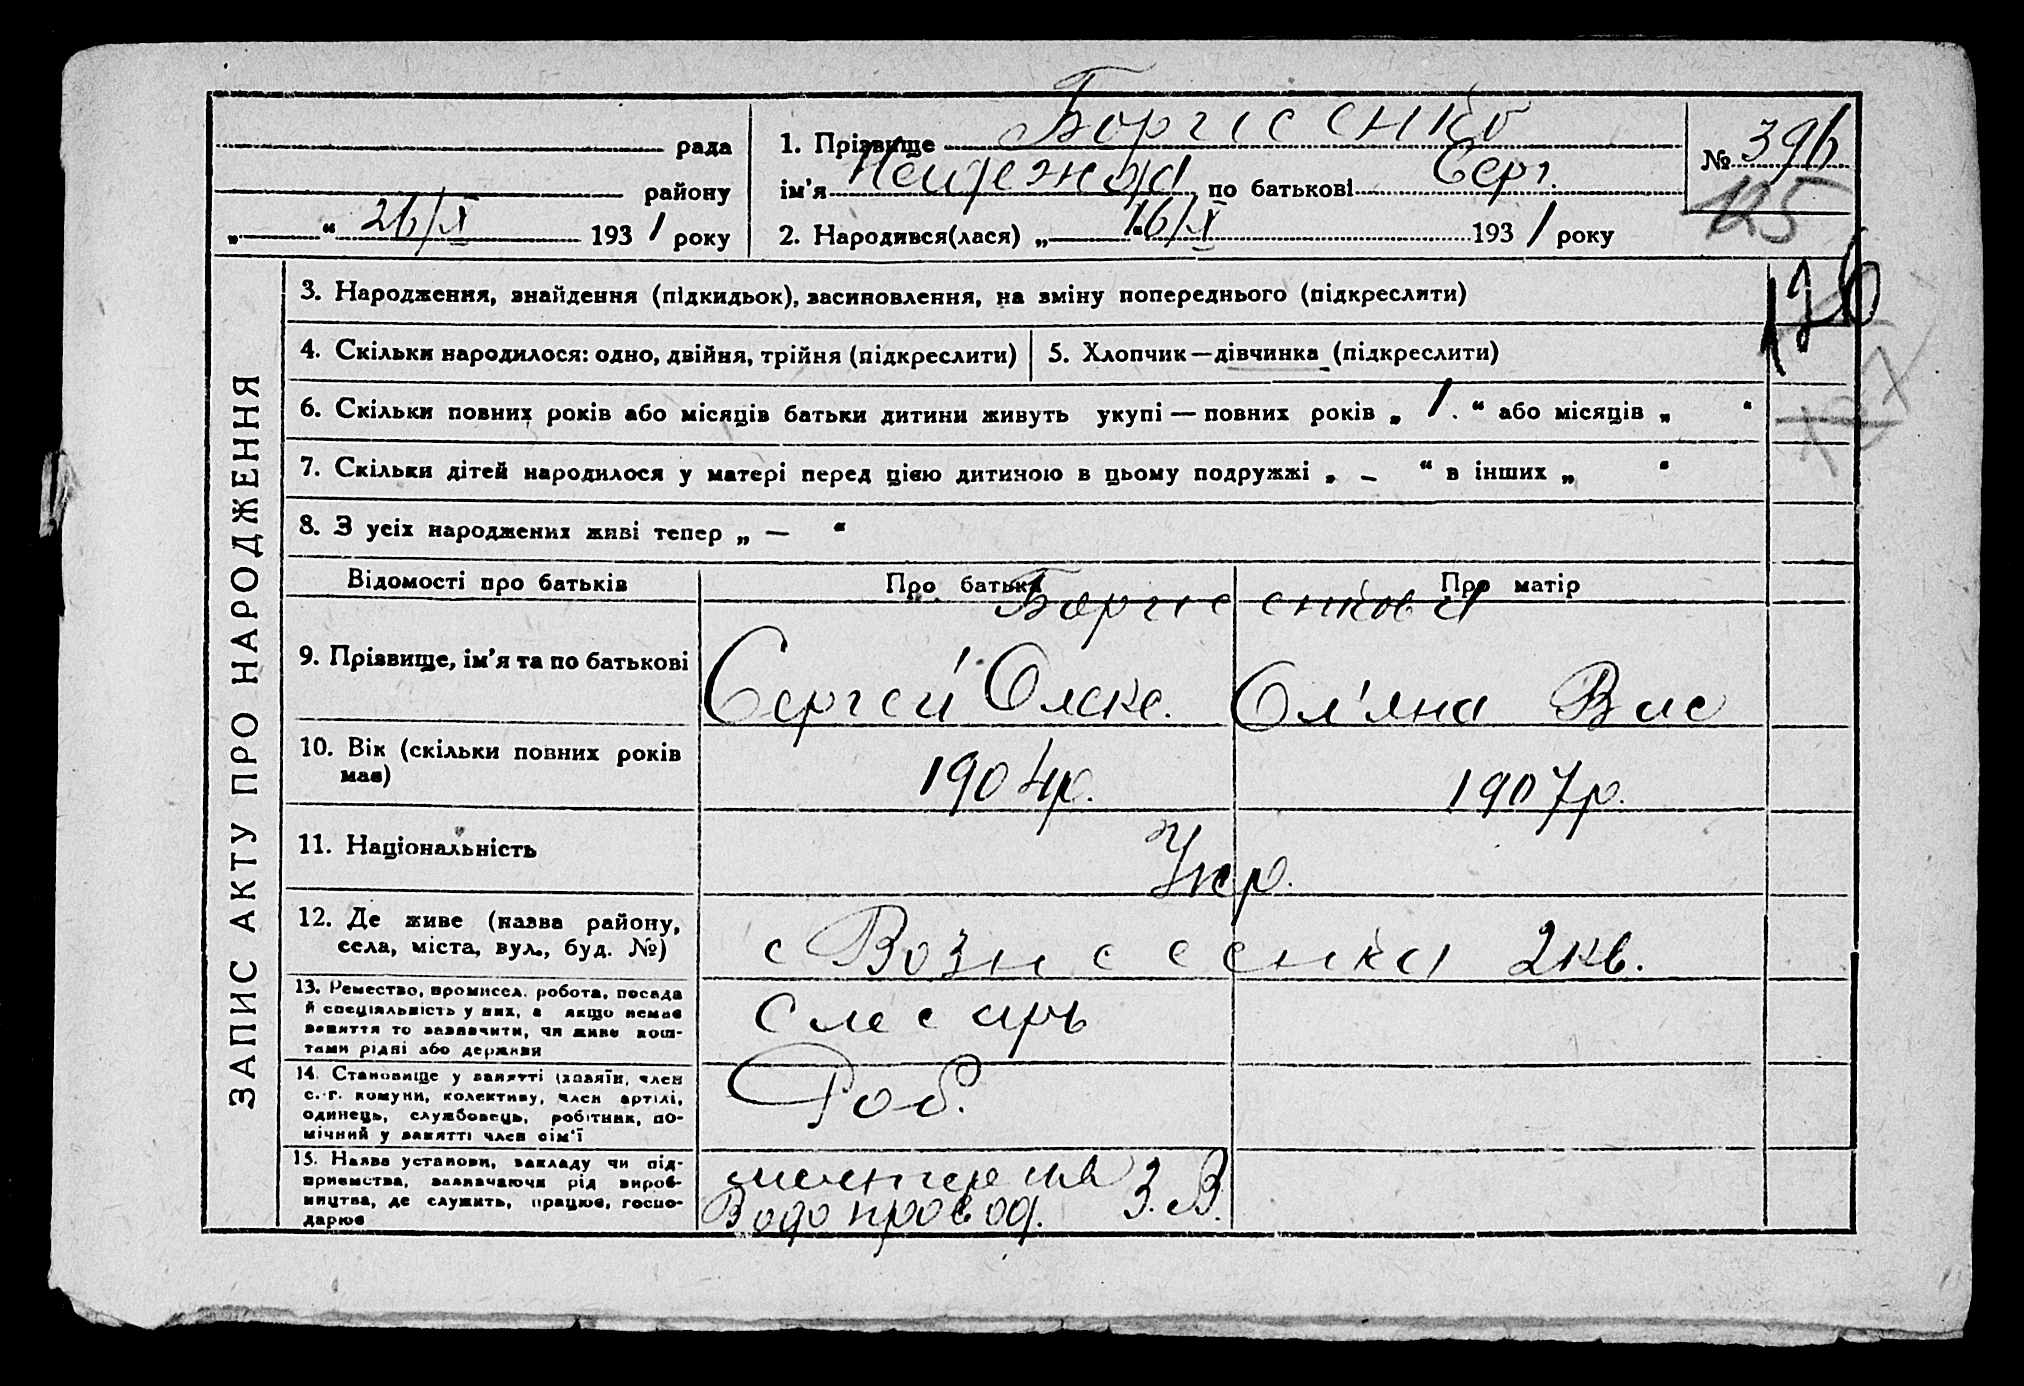 рада
району
„ “ 26/X 1931 року
1. Прізвище Борисенко
ім’я Надежда по батькові Серг.
2. Народився(лася) „ “ 16/X 1931 року
№ 396
125
126
ЗАПИС АКТУ ПРО НАРОДЖЕННЯ
3. Народження, знайдення (підкидьок), засиновлення, на зміну попереднього (підкреслити)
4. Скільки народилося: одно, двійня, трійня (підкреслити)
5. Хлопчик—дівчинка (підкреслити)
6. Скільки повних років або місяців батьки дитини живуть укупі — повних років „ 1. “ або місяців „ “
7. Скільки дітей народилося у матері перед цією дитиною в цьому подружжі „ – “ в інших „ “
8. З усіх народжених живі тепер „ — “
Відомості про батьків
Про батька
Про матір
9. Прізвище, ім’я та по батькові
Борисенкови
Сергей Олекс.
Ол’яна Вас
10. Вік (скільки повних років
має)
1904р.
1907р.
11. Національність
Укр.
12. Де живе (назва району,
села, міста, вул., буд. №)
с Вознесенка 2кв.
13. Ремество, промисел, робота, посада
й спеціальність у них, а якщо немає
заняття то зазначити, чи живе кош-
тами рідні або держави
Слесарь
14. Становище у занятті (хазяїн, член
с.-г. комуни, колективу, член артілі,
одинець, службовець, робітник, по-
мічний у занятті член сім’ї
Роб.
15. Назва установи, закладу чи під-
приємства, зазначаючи рід вироб-
ництва, де служить, працює, госпо-
дарює
Водопровод. З. В.